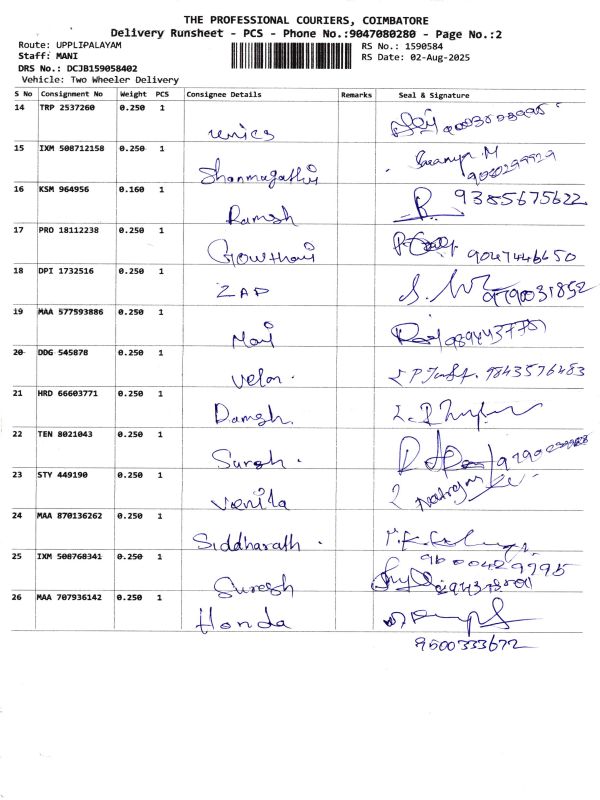 THE PROFESSIONAL COURIERS, COIMBATORE
Delivery Runsheet - PCS - Phone No.:9047080280 - Page No.:2
Route: UPPLIPALAYAM
RS No.: 1590584
Staff: MANI
RS Date: 02-Aug-2025
DRS No.: DCJB159058402
Vehicle: Two Wheeler Delivery
S No Consignment No Weight PCS Consignee Details Remarks Seal & Signature
14 TRP 2537260 0.250 1
15 IXM 508712158 0.250 1
16 KSM 964956 0.160 1 Ramesh 9385675622
17 PRO 18112238 0.250 1 Gowtham 9047446650
18 DPI 1732516 0.250 1 ZAP
19 MAA 577593886 0.250 1 Mani
20 DDG 545878 0.250 1 Velan. 9843576483
21 HRD 66603771 0.250 1
22 TEN 8021043 0.250 1 Suresh.
23 STY 449190 0.250 1 Vanila
24 MAA 870136262 0.250 1 Siddharath.
25 IXM 508768341 0.250 1 Suresh 9600429795
26 MAA 707936142 0.250 1 Honda
9500333672